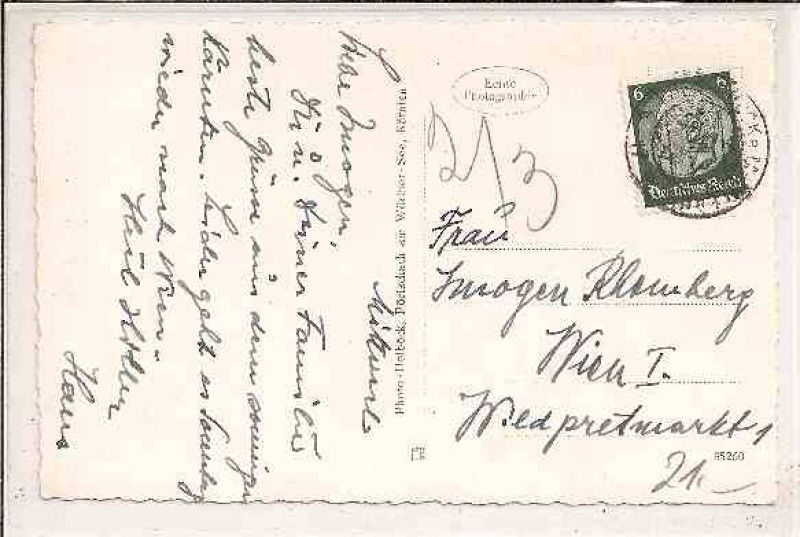 Mittwoch
Liebe Imogen!
Dir u. Deiner Familie
beste Grüsse aus dem sonnigen
Kärnten. Leider geht es Sonntag
wieder nach Wien.
Heil Hitler
Hans
Photo-Helböck, Pörtschach am Wörther-See, Kärnten
Echte
Photographie
6 6
Deutsches Reich
Frau
Imogen Klomberg
Wien I.
Wildpretmarkt 1
85260
21.-